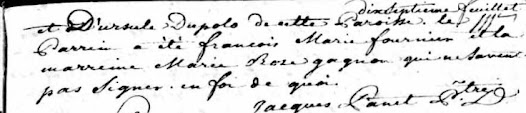 dixseptieme feuillet
et D'ursule Dupolo de cette Paroisse le
Parrein a été francois Marie fournier et la
marreine Marie Roze gagnon qui ne savent
pas signer. en foi de quoi.
Jacques Panet Ptre